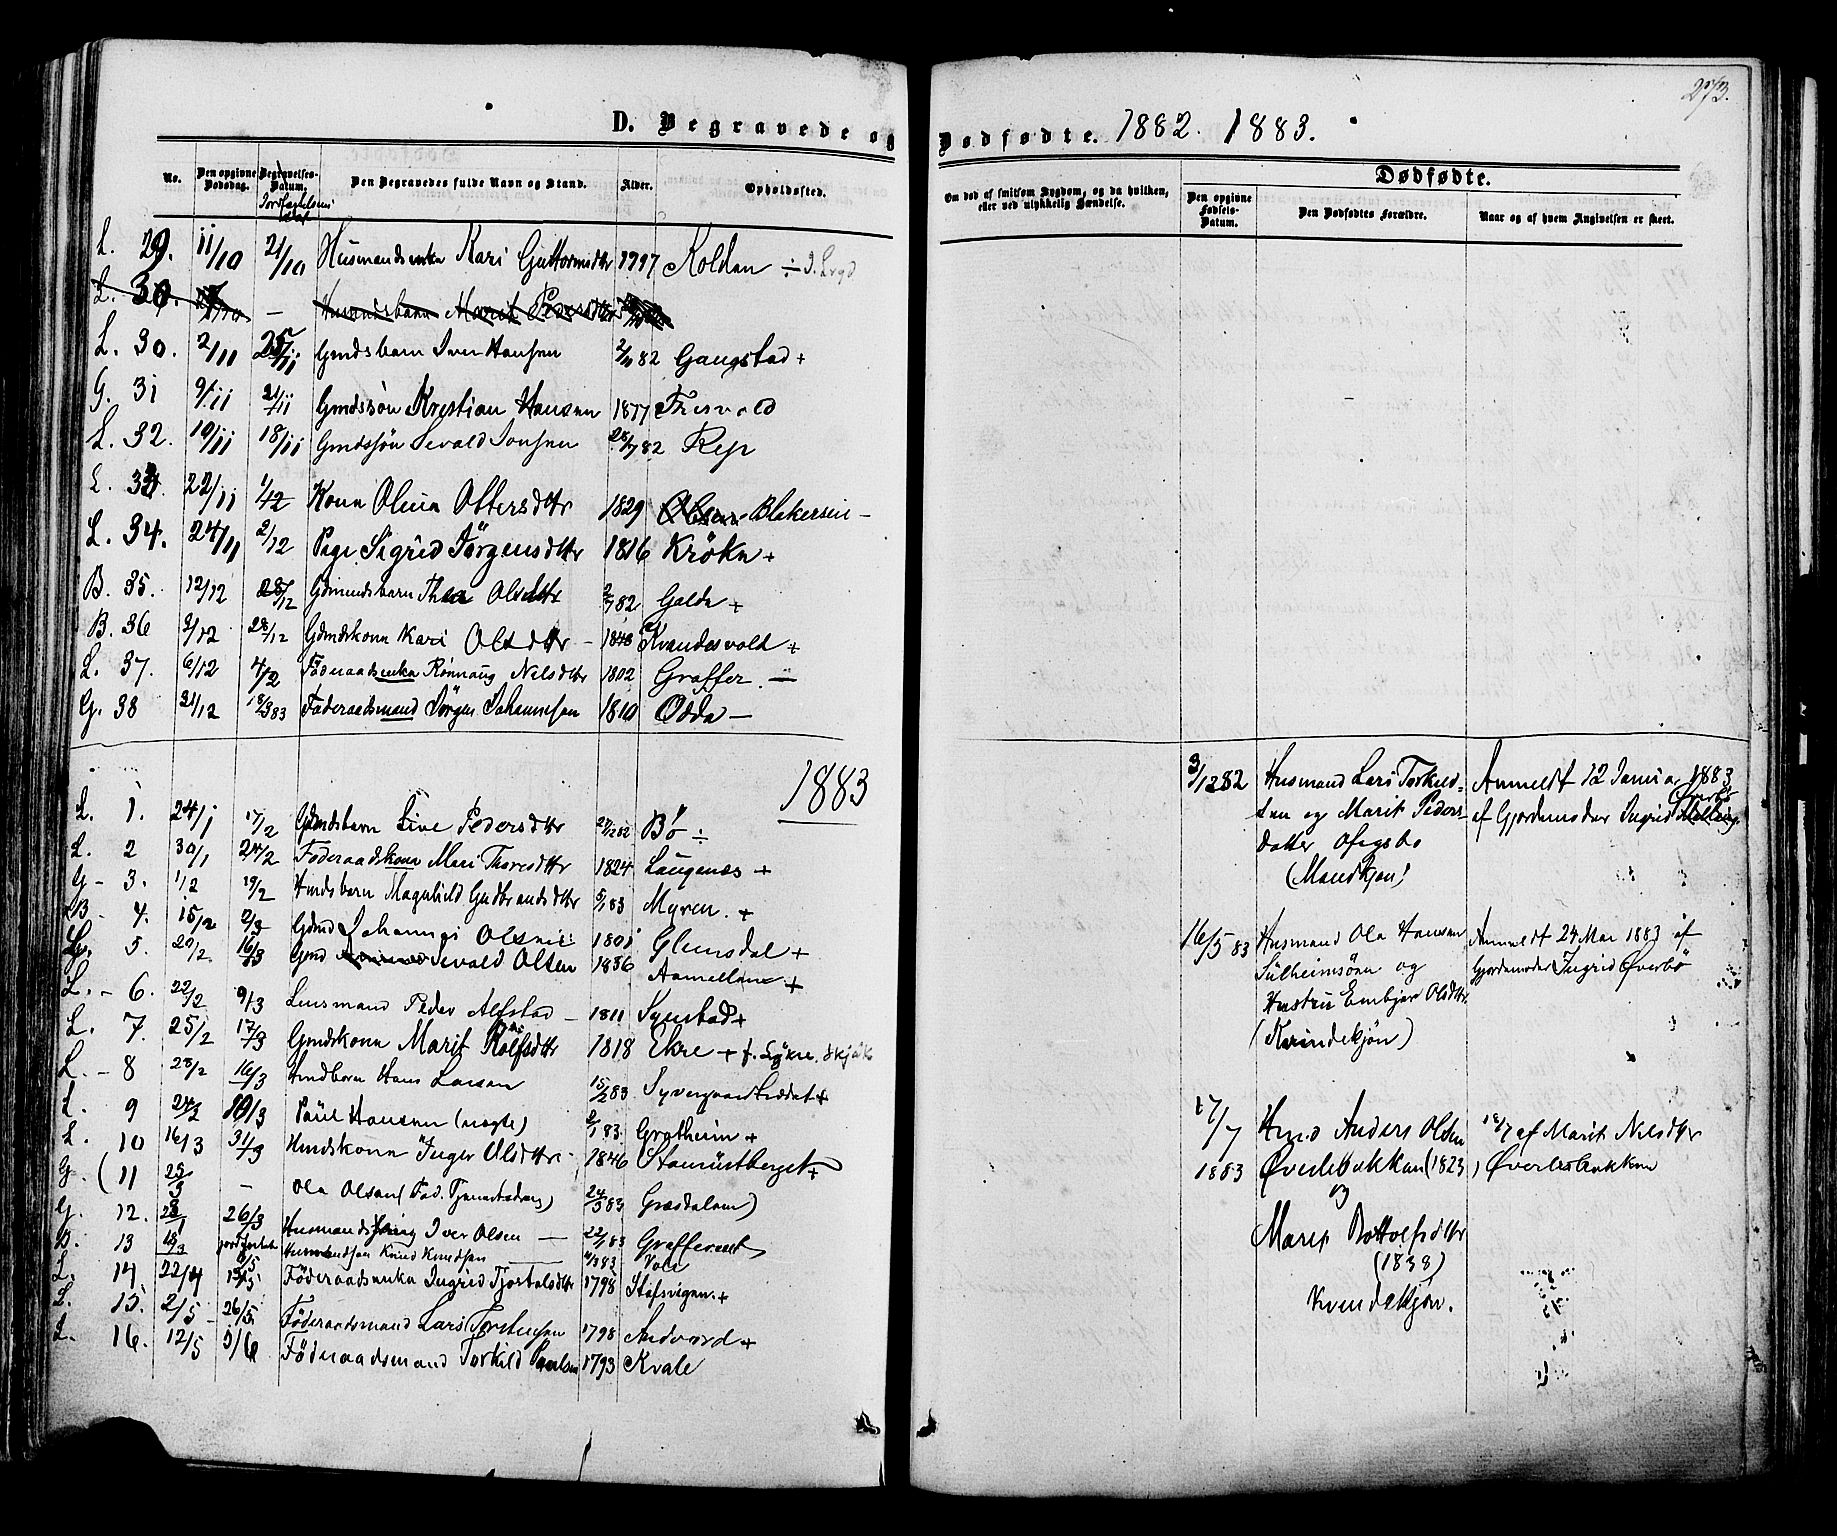 273.
D. Begravede og Dødfødte. 1882. 1883.
No. Den opgivne Dødsdag. Begravelses-Datum. Jordfæstelsens Den Begravedes fulde Navn og Stand. Alder. Opholdssted.
Om død af smitsom Sygdom, og da hvilken, eller ved ulykkelig Hændelse.
Dødfødte.
Den opgivne Fødsels-Datum. Den Dødfødtes Forældre. Naar og af hvem Angivelsen er skeet.
L. 29. 11/10 21/10 Husmandsenke Kari Guttormsdtr 1797 Kolden ÷
L. 30. — Husmdsbarn Marit Pedersdtr
L. 30. 2/11 25/11 Gmdsbarn Iver Hansen 2/11 82 Gaugstad +
G. 31 9/11 21/11 Gmdssøn Kristian Hansen 1877 Frisvold
L. 32. 10/11 18/11 Gmdssøn Sevald Jonsen 28/7 82 Rep
L. 33. 22/11 1/12 Kona Olina Ottersdtr 1829 Blekerseie —
L. 34. 24/11 2/12 Pige Sigrid Jörgensdtr 1816 Kröken +
B. 35. 12/12 28/12 Gdmndsbarn Thea Olsdtr 2/7 82 Galde +
B. 36 2/12 28/12 Gdmdskona Kari Olsdtr — 1848 Kvandesvold +
L. 37. 6/12 4/2 Föderaadsenka Rønnaug Nilsdtr 1802 Graffer —
G. 38 31/12 18/3 83 Föderaadsmand Jörgen Johannesen 1810 Odda —
1883
L. 1. 24/1 17/2 Gdmdsbarn Live Pedersdtr 27/12 82 Bö ÷
L. 2 30/1 24/2 Föderaadskona Mari Thoresdtr 1824 Laugenæs +
G - 3. 1/2 19/2 Hmdsbarn Magnhild Gudbrandsdtr 5/1 83 Myren. +
B - 4. 15/2 2/3 Gdmd Johannes Olsen 1801 Glimsdal +
5. 20/2 16/3 Gmd Sevald Olsen 1836 Aamellem +
L. - 6. 22/2 9/3 Lensmand Peder Alfstad — 1811 Synstad +
L. 7. 25/2 17/3 Gmdskona Marit Rolfsdtr 1818 Ekre + f. Lykre. Skjåk
L. - 8 28/2 16/3 Hmdbarn Hans Larsen 15/2 83 Syvergaardseddet +
L. 9 24/2 10/3 Paul Hansen (uægte) 2/1 83 Grotheim +
L. 10 16/3 31/3 Hmdskona Inger Olsdtr. 1846 Stamüstberget +
G. (11 25/3 — Ola Olsen 24/3 83 Græsdalen)
G. 12. 23/1 26/3 Iver Olsen — 22/1 83 Grafferent
B. 13 18/3 jordfæstet 6/5 Husmandssøn Knud Knudsen 11/3 83 Vole
L. 14. 22/4 13/5 Föderaadsenka Ingrid Tjostolsdtr 1798 Stafsvigen. +
L. 15. 2/5 26/5 Föderaadsmand Lars Torstensen 1798 Andvord +
L. 16. 12/5 9/6 Föderaadsmand Torkild Paulsen 1793 Kvale
3/12 82 Husmand Lars Torkild- Anmeldt 12 Januar 1883
sen og Marit Peders- af Gjordemoder Ingrid Överbö
datter Ofigsbo
(Mandkjøn)
16/5 83 Husmand Ola Hansen Anmeldt 24 Mai 1883 af
Sülheimsöen og Gjordemoder Ingrid Øverbö
Hustru Embjør Olsdtr
(Kvindekjön)
17/7 Hmd Anders Olsen 18/7 af Marit Nilsdtr
1883 Øverlebakken (1823) Øverlesbakken
og
Marit Bottolfsdtr
(1838)
Kvindekjön.